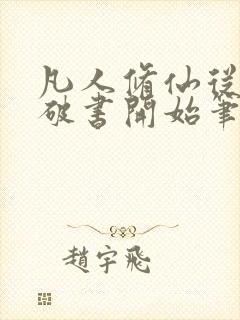 凡人脩仙從
破書開始筆
趙宇飛